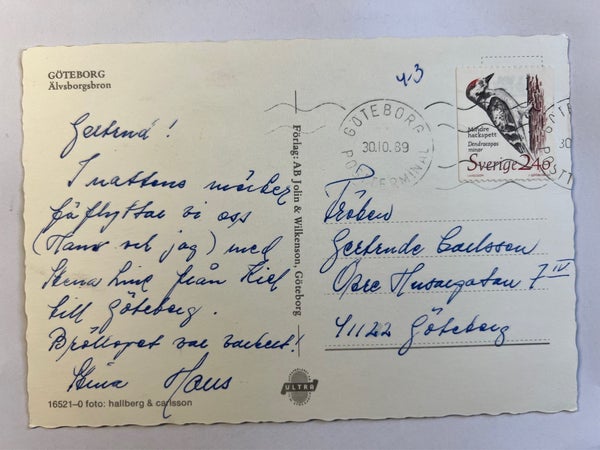 GÖTEBORG
Älvsborgsbron
Gertrud!
I nattens mörker
förflyttar vi oss
(Hans och jag) med
Stena Line från Kiel
till Göteborg.
Bröllopet var vackert!
Stina Hans
16521-0 foto: hallberg & carlsson
Förlag: AB Jolin & Wilkenson, Göteborg
ULTRA
43
GÖTEBORG
30.10.89
POSTTERMINAL
Mindre
hackspett
Dendrocopos
minor
Sverige 2.40
30
Fröken
Gertrude Carlsson
Övre Husargatan 7 IV
41122 Göteborg